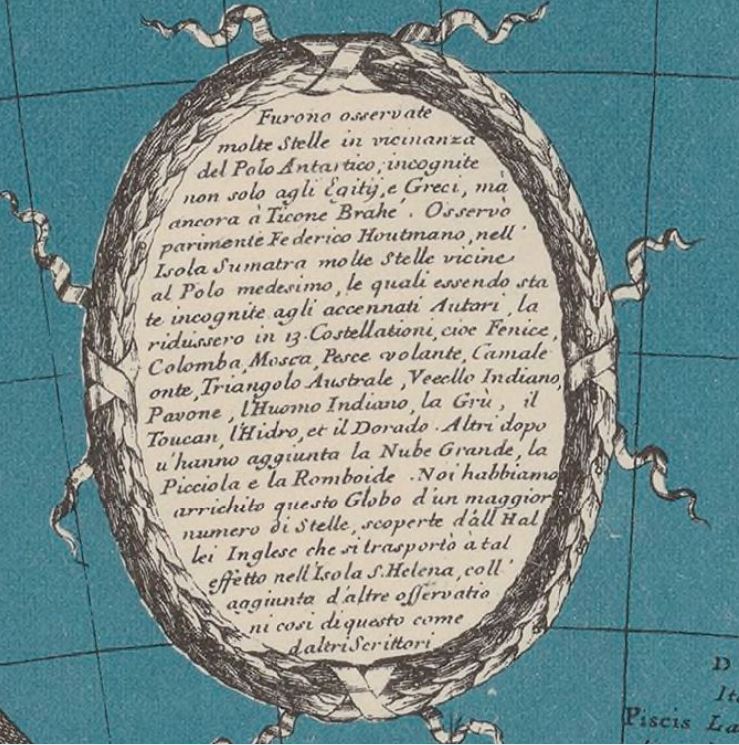 Furono osservate
molte Stelle in vicinanza
del Polo Antartico, incognite
non solo agli Egitij, e Greci, mà
ancora à Ticone Brahe. Osservò
parimente Federico Houtmano, nell'
Isola Sumatra molte Stelle vicine
al Polo medesimo, le quali essendo sta
te incognite agli accennati Autori, la
ridussero in 13. Costellationi, cioe Fenice,
Colomba, Mosca, Pesce volante, Camale
onte, Triangolo Australe, Vcello Indiano,
Pavone, l'Huomo Indiano, la Grù, il
Toucan, l'Hidro, et il Dorado. Altri dopo
u'hanno aggiunta la Nube Grande, la
Picciola e la Romboide. Noi habbiamo
arrichito questo Globo d'un maggior
numero di Stelle, scoperte dàll Hal
lei Inglese che si trasportò à tal
effetto nell'Isola S. Helena, coll'
aggiunta d'altre osservatio
ni cosi di questo come
d altri Scrittori
D
It
Piscis La